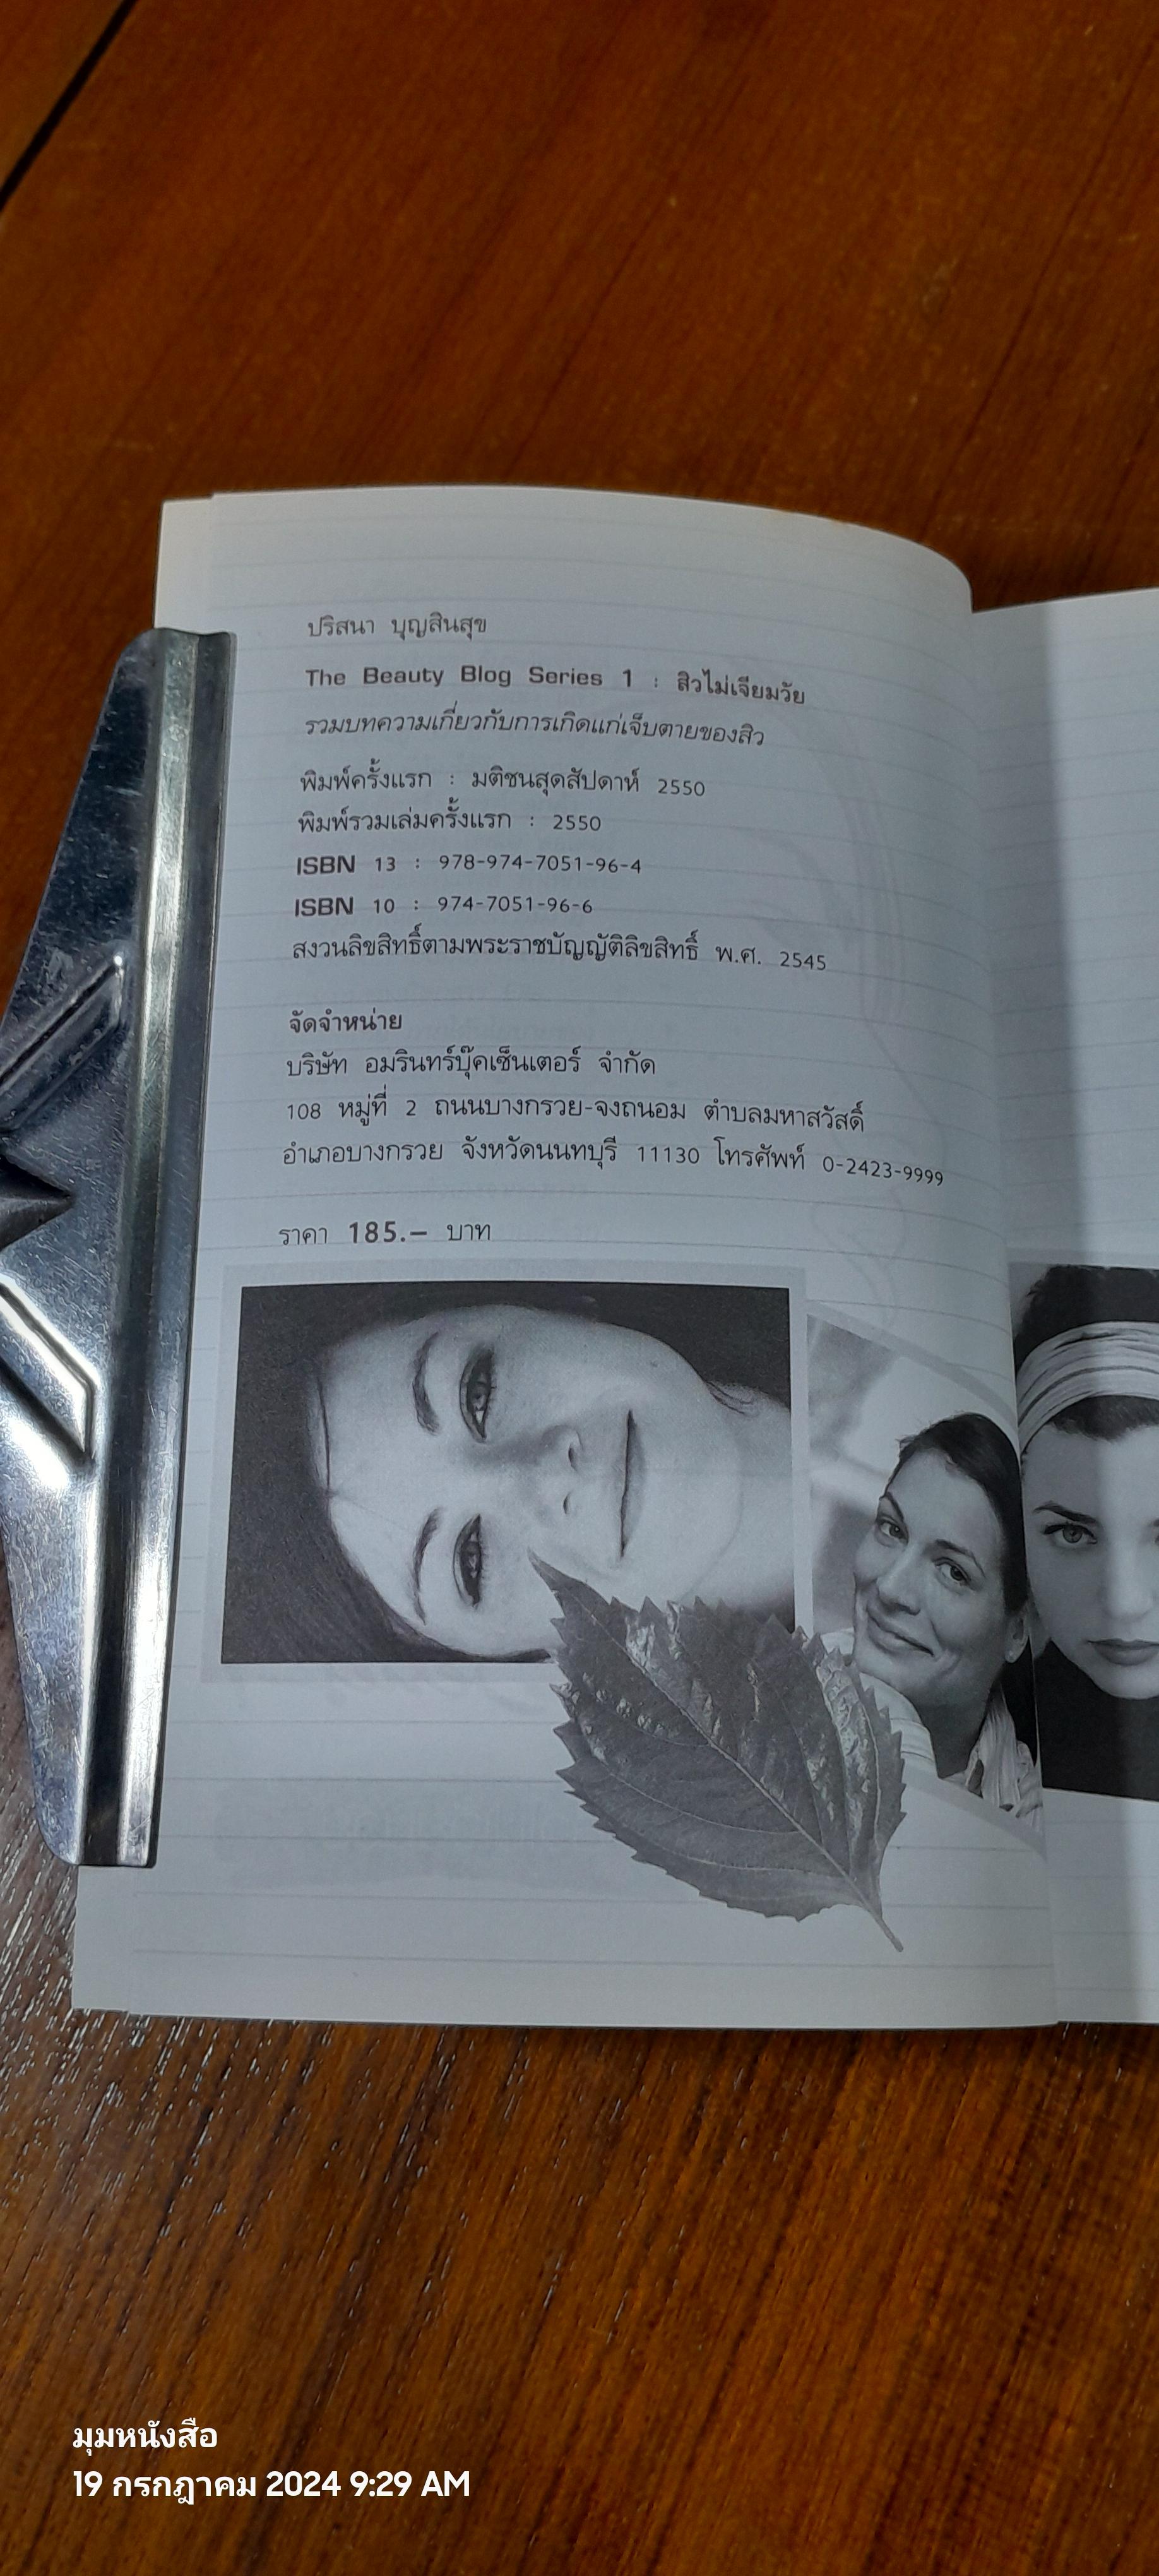 ปริสนา บุญสินสุข
The Beauty Blog Series 1 : สิวไม่เจียมวัย
รวมบทความเกี่ยวกับการเกิดแก่เจ็บตายของสิว
พิมพ์ครั้งแรก : มติชนสุดสัปดาห์ 2550
พิมพ์รวมเล่มครั้งแรก : 2550
ISBN 13 : 978-974-7051-96-4
ISBN 10 : 974-7051-96-6
สงวนลิขสิทธิ์ตามพระราชบัญญัติลิขสิทธิ์ พ.ศ. 2545
จัดจำหน่าย
บริษัท อมรินทร์บุ๊คเซ็นเตอร์ จำกัด
108 หมู่ที่ 2 ถนนบางกรวย-จงถนอม ตำบลมหาสวัสดิ์
อำเภอบางกรวย จังหวัดนนทบุรี 11130 โทรศัพท์ 0-2423-9999
ราคา 185.– บาท
มุมหนังสือ
19 กรกฎาคม 2024 9:29 AM